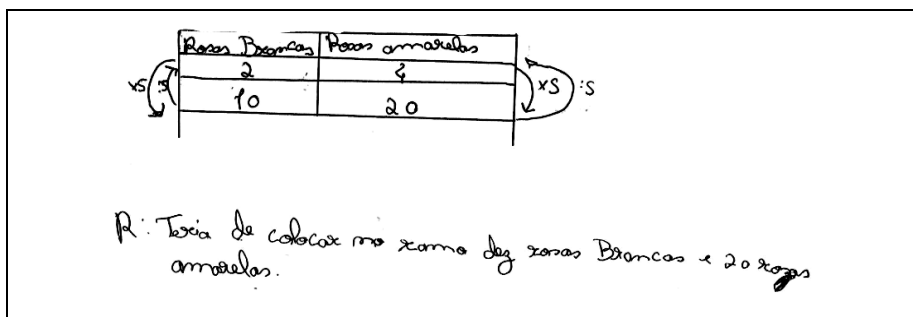 Rosas Brancas Rosas amarelas
x5 :5 2 4 x5 :5
10 20
R: Teria de colocar no ramo dez rosas Brancas e 20 rozas
amarelas.